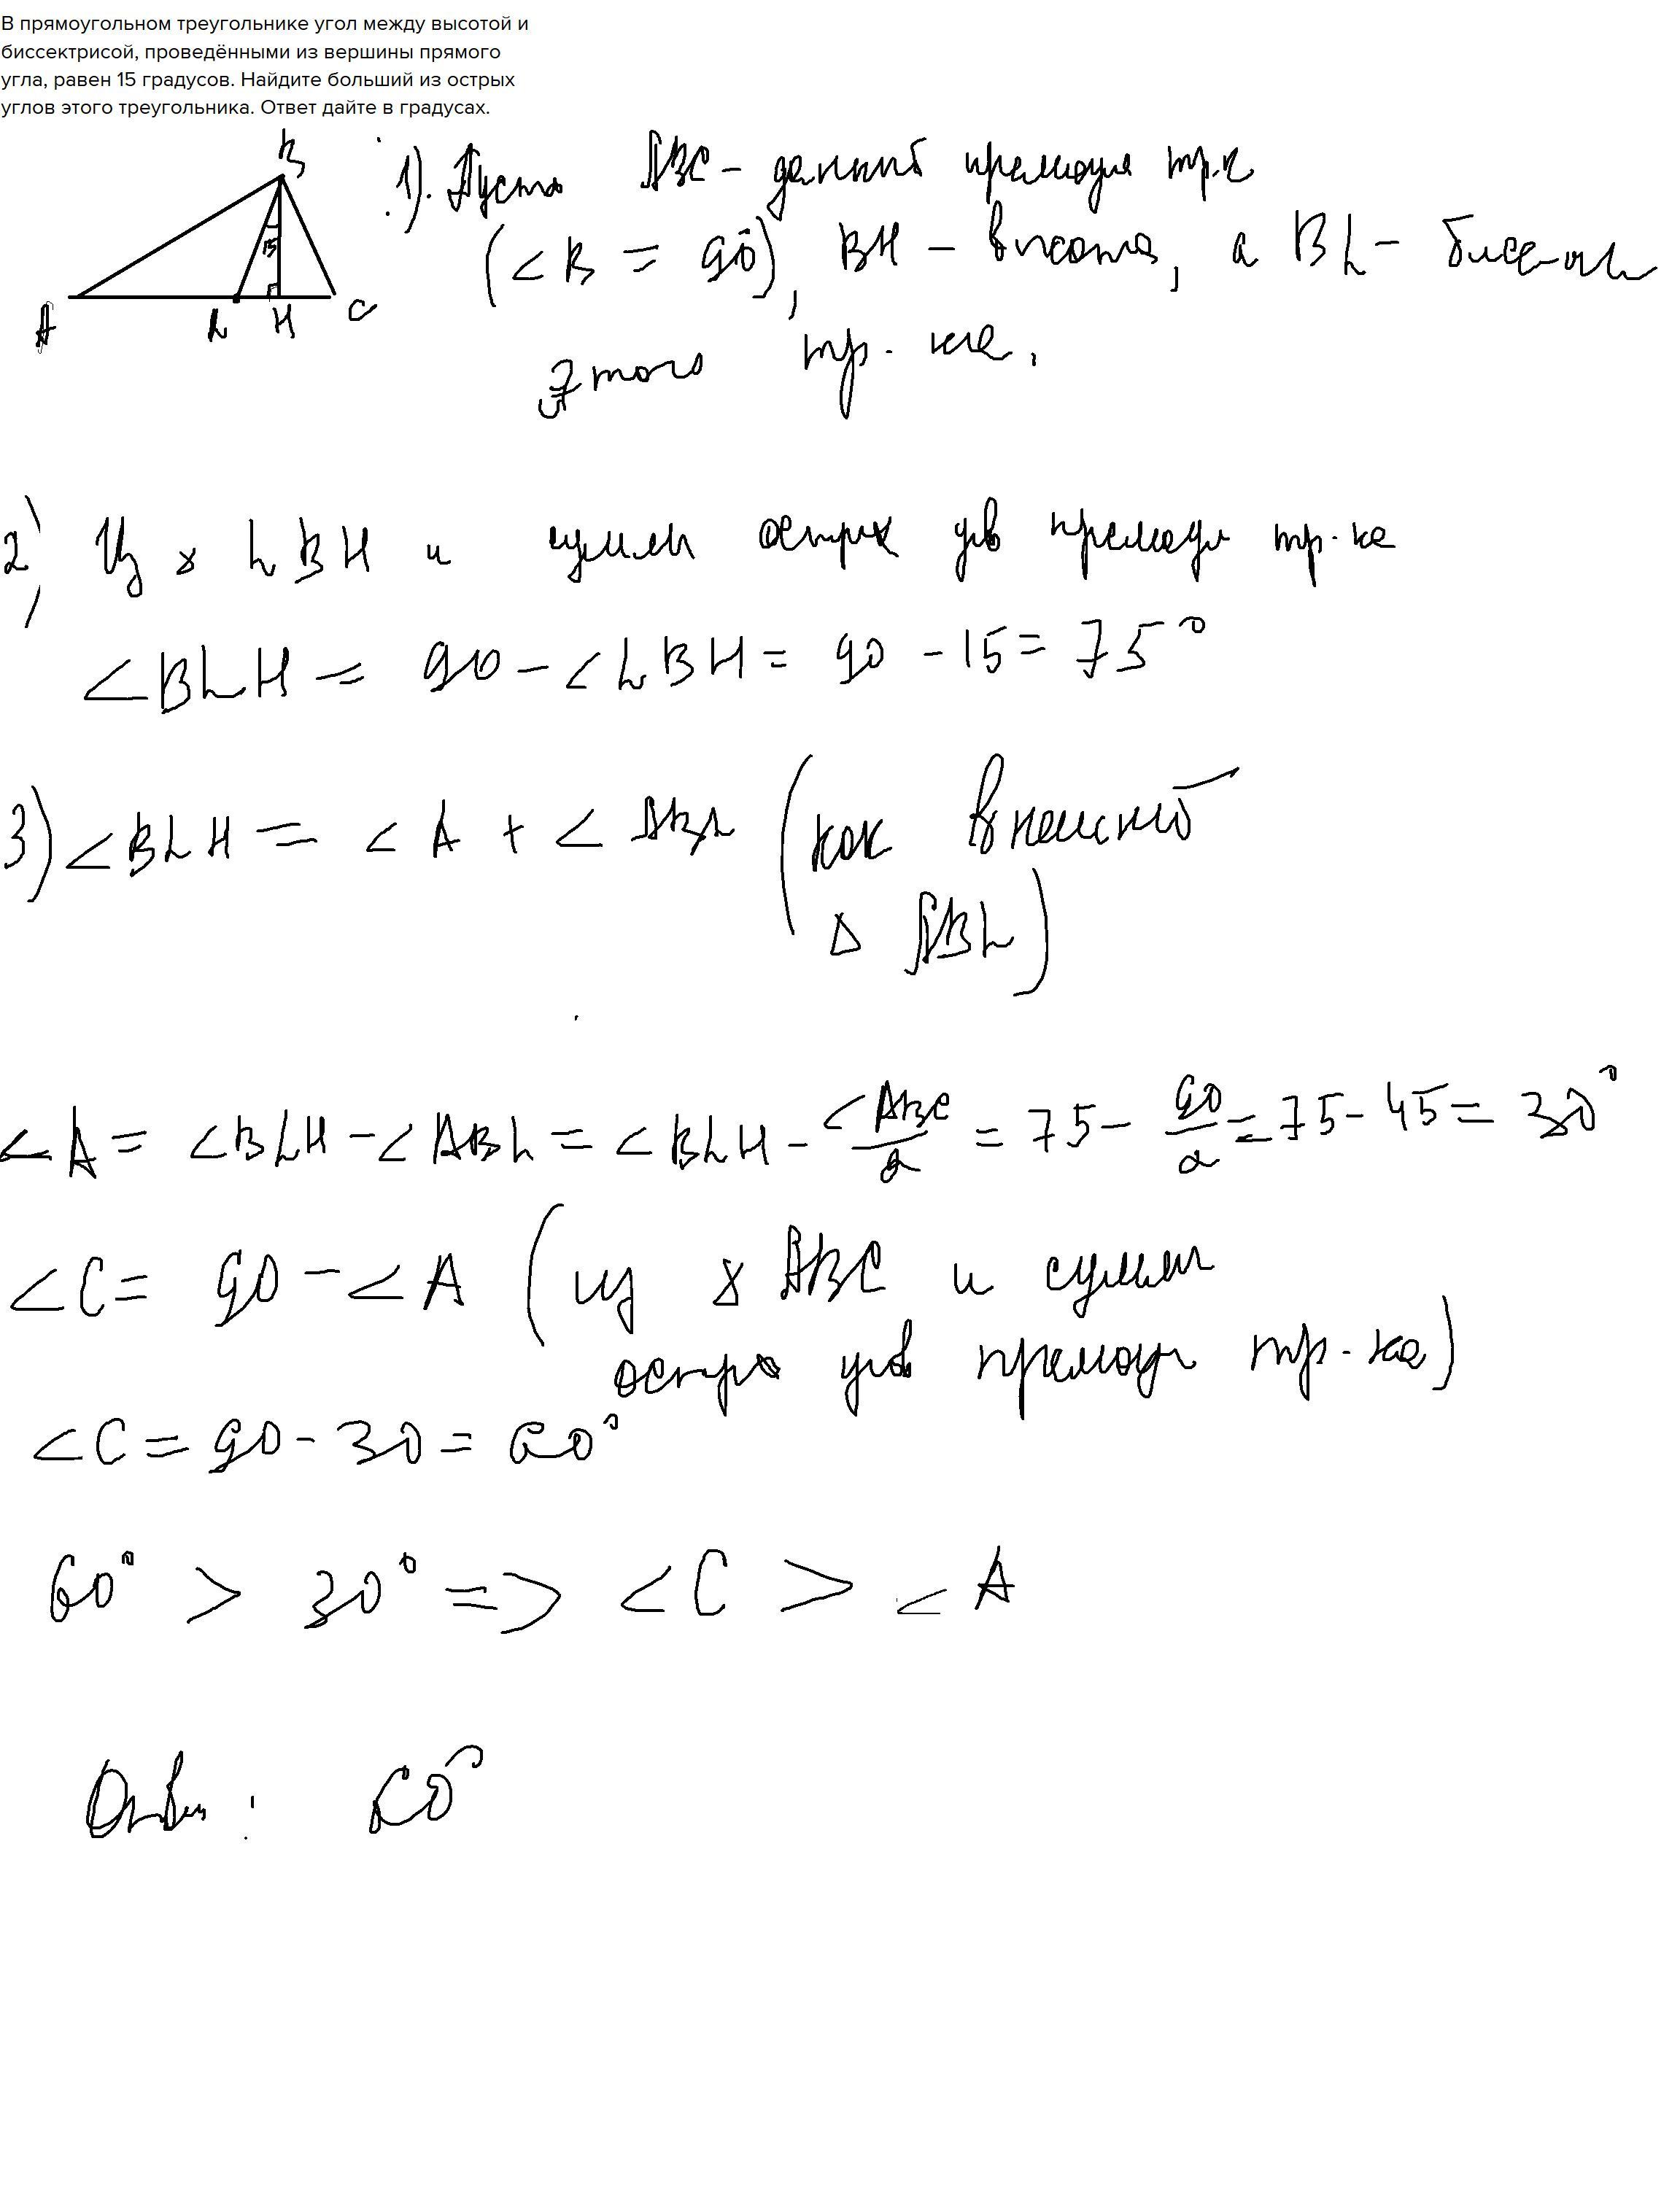 В прямоугольном треугольнике угол между высотой и
биссектрисой, проведёнными из вершины прямого
угла, равен 15 градусов. Найдите больший из острых
углов этого треугольника. Ответ дайте в градусах.
B
15
A L H C
1). Пусть ABC - данный прямоуг тр.к
(∠B = 90°), BH - высота, а BL -
этого тр. ка.
2) Из △ LBH и суммы остры угв прямоуг тр-ка
∠BLH = 90 - ∠LBH = 90 - 15 = 75°
3) ∠BLH = ∠A + ∠ABL (как внешний
△ ABL)
∠A = ∠BLH - ∠ABL = ∠BLH - ∠ABC/2 = 75 - 90/2 = 75 - 45 = 30°
∠C = 90 - ∠A (из △ ABC и суммы
остры угв прямоуг тр-ка)
∠C = 90 - 30 = 60°
60° > 30° => ∠C > ∠A
Ответ: 60°